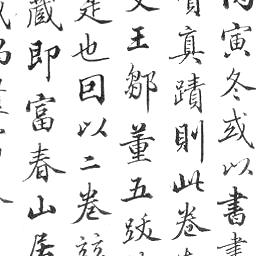 寅冬或以書畫
真蹟則此卷
王鄒董五跋
是也因以二卷
藏即富春山居